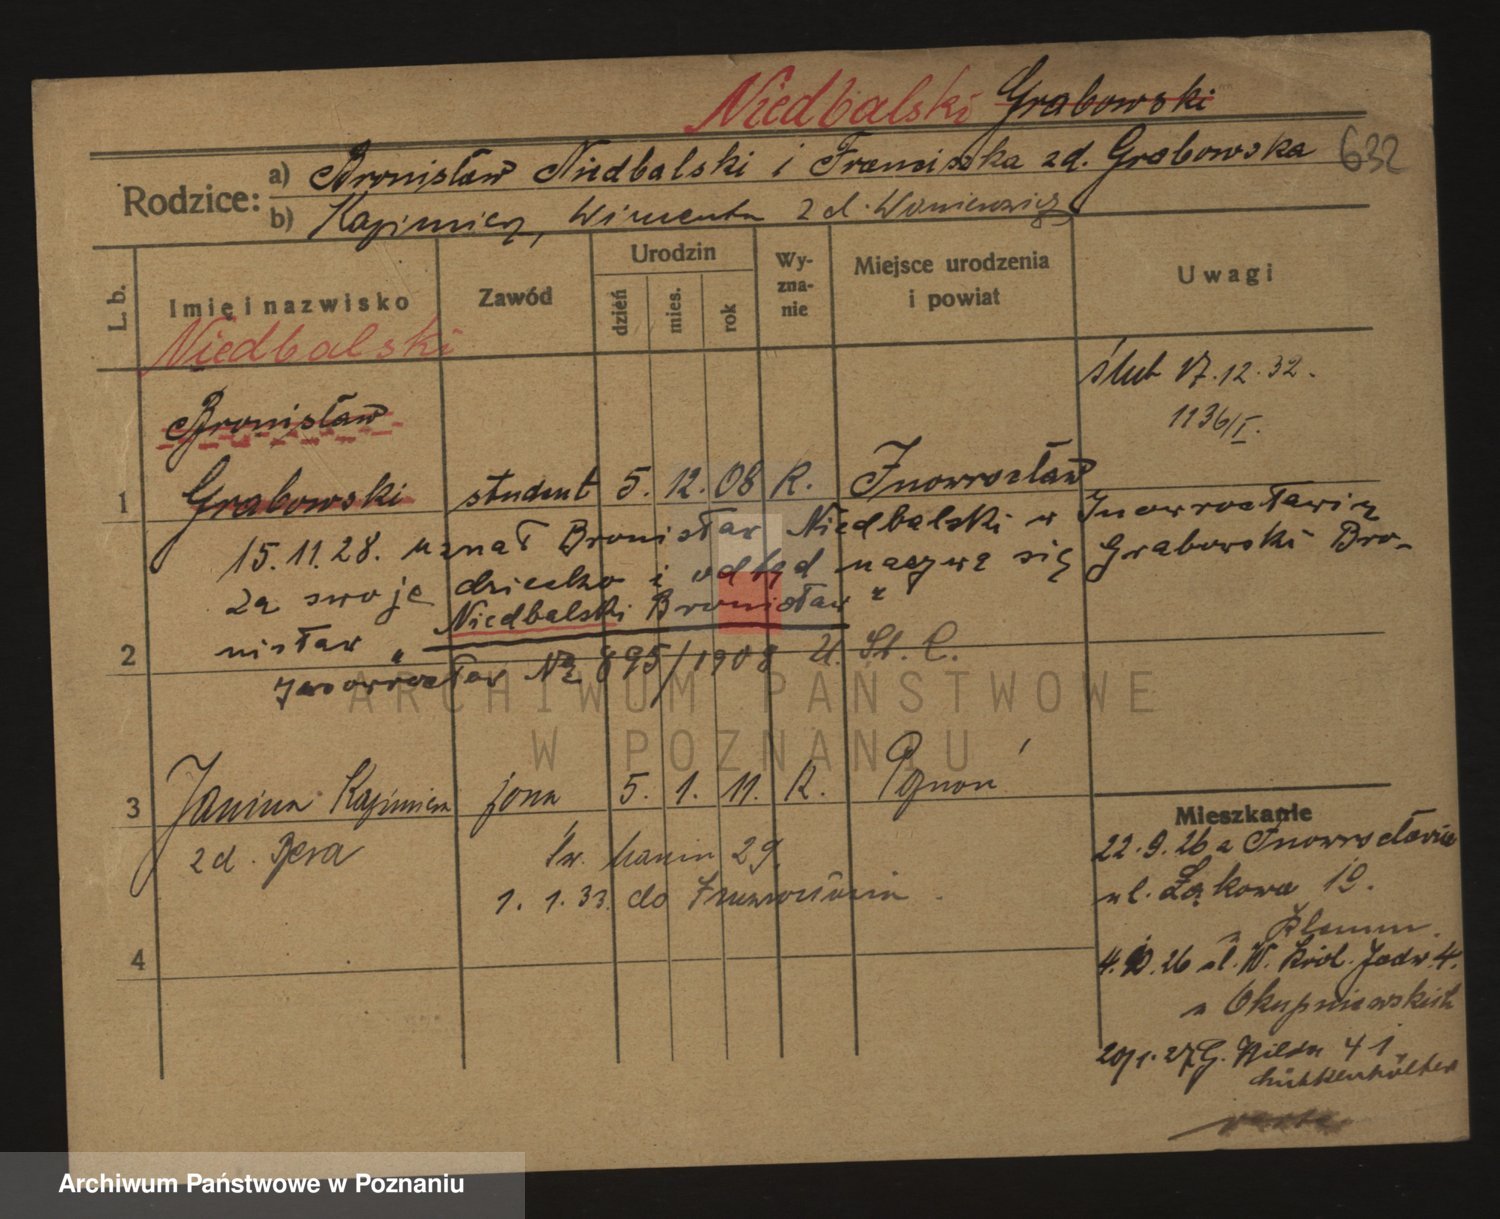 Niedbalski Grabowski
632
Rodzice:
a) Bronisław Niedbalski i Franciszka zd. Grabowska
b) Kazimierz, Wincenta zd.
L. b.
Imię i nazwisko
Zawód
Urodzin
dzień
mies.
rok
Wy-
zna-
nie
Miejsce urodzenia
i powiat
Uwagi
Niedbalski
Bronisław
1 Grabowski student 5. 12. 08 R. Inowrocław
ślub 17.12.32.
1136/I.
15.11.28. uznał Bronisław Niedbalski w Inowrocławiu
za swoje dziecko i odtąd nazywa się Grabowski Bro-
nisław „Niedbalski Bronisław"
2
Inowrocław No 895/1908 U. St. C.
3 Janina Kazimiera żona 5. 1. 11. R. Poznań
zd. Bera
Św. Marcin 29.
1. 1. 33. do Inowrocławia.
4
Mieszkanie
22.9.26 z Inowrocławia
ul. Łąkowa 19.
u
4.10.26 ul. W. Król. Jadw. 4.
u
20/1.27 G. Wilda 41
ARCHIWUM PAŃSTWOWE
W POZNANIU
Archiwum Państwowe w Poznaniu